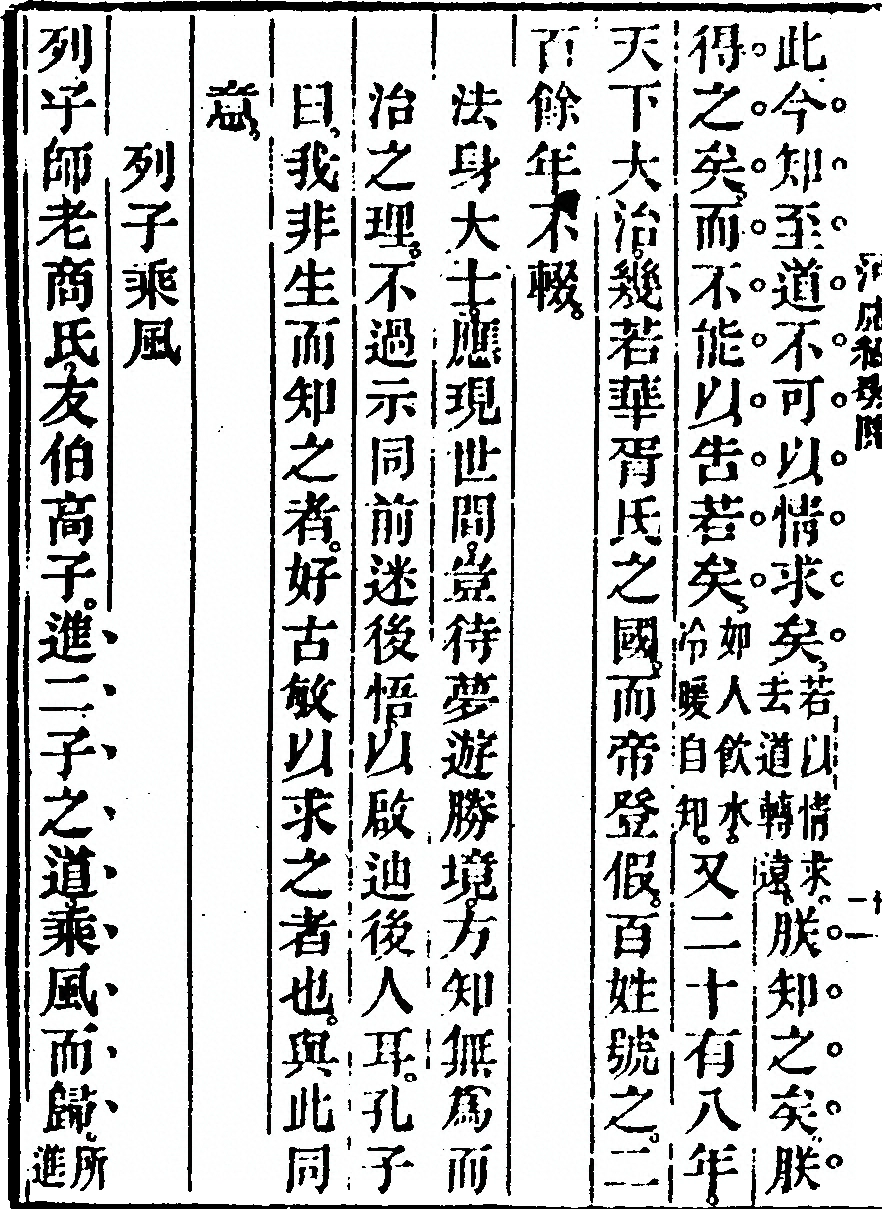 此今知至道不可以情求矣若以情求去道轉遠朕知之矣朕
得之矣而不能以告若矣如人飲水冷暖自知又二十有八年
天下大治幾若華胥氏之國而帝登假百姓號之二
百餘年不輟
法身大士應現世間豈待夢遊勝境方知無爲而
治之理不過示同前迷後悟以啟迪後人耳孔子
曰我非生而知之者好古敏以求之者也與此同
意
列子乘風
列子師老商氏友伯高子進二子之道乘風而歸所進